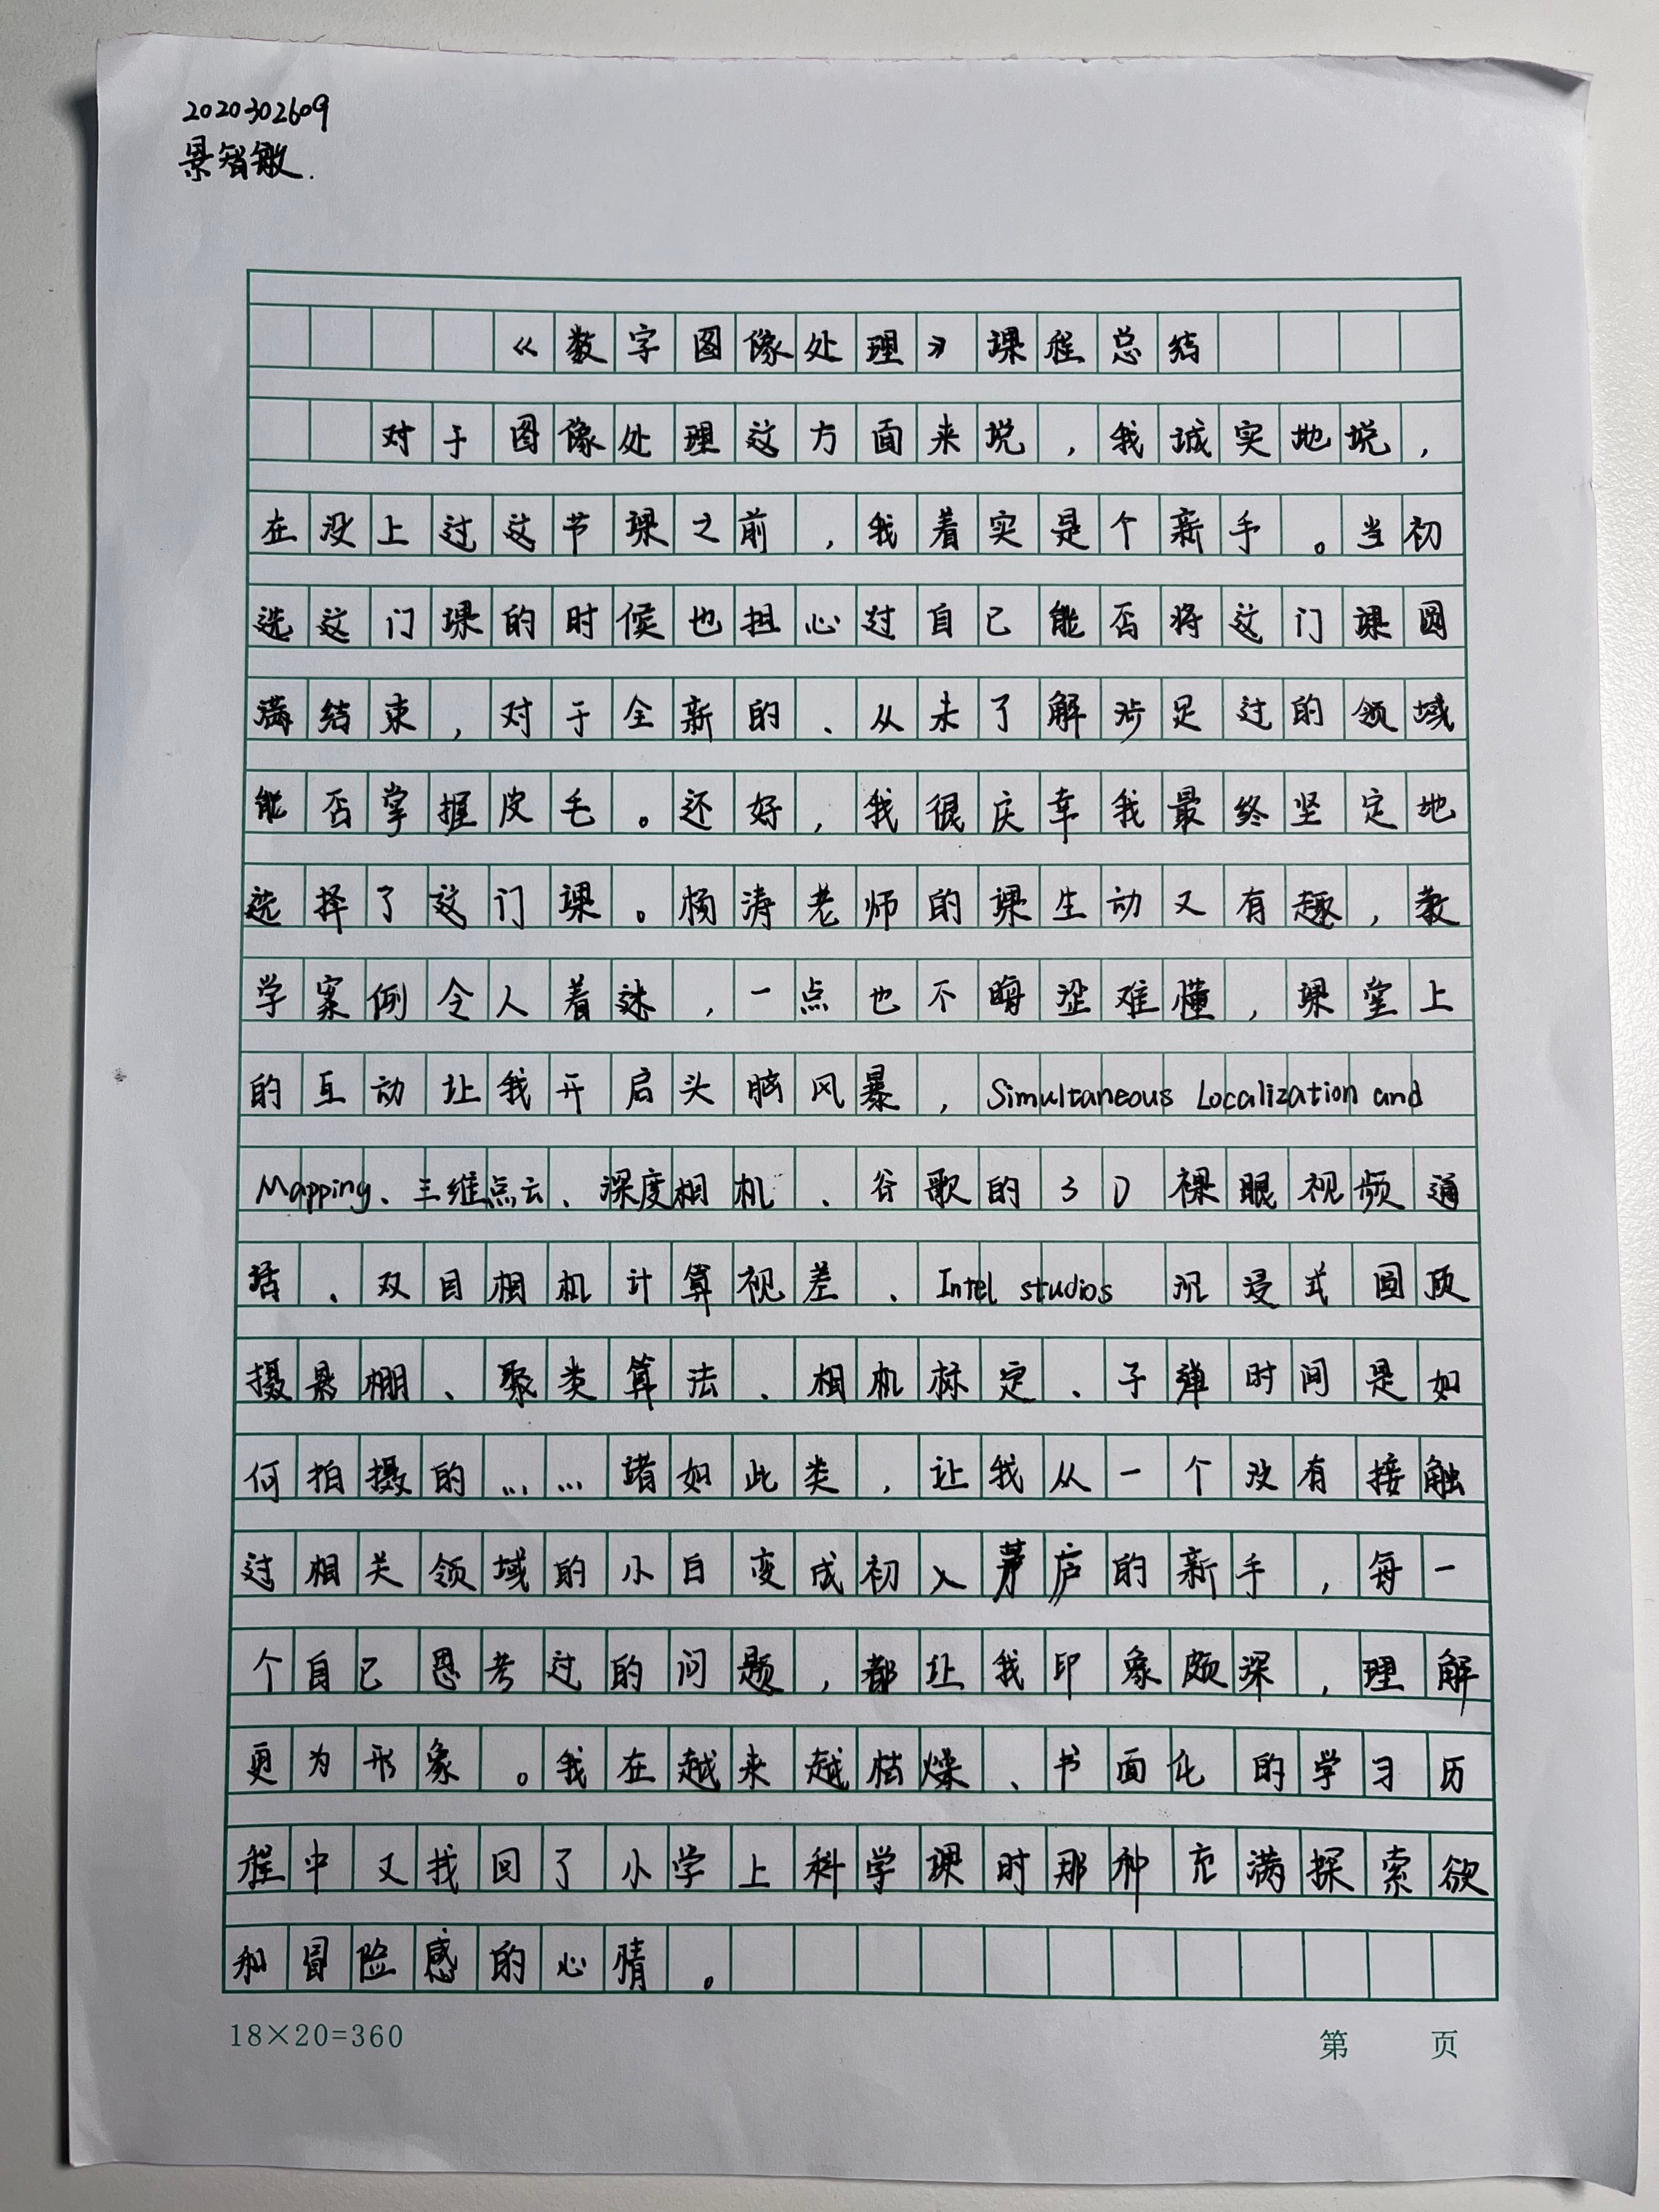 2020302609
景智敏.
《数字图像处理》课程总结
对于图像处理这方面来说,我诚实地说,
在没上过这节课之前,我着实是个新手。当初
选这门课的时候也担心过自己能否将这门课圆
满结束,对于全新的、从未了解涉足过的领域
能否掌握皮毛。还好,我很庆幸我最终坚定地
选择了这门课。杨涛老师的课生动又有趣,教
学案例令人着迷,一点也不晦涩难懂,课堂上
的互动让我开启头脑风暴,Simultaneous Localization and
Mapping、三维点云、深度相机、谷歌的3D裸眼视频通
话、双目相机计算视差、Intel studios 沉浸式圆顶
摄影棚、聚类算法、相机标定、子弹时间是如
何拍摄的……诸如此类,让我从一个没有接触
过相关领域的小白变成初入茅庐的新手,每一
个自己思考过的问题,都让我印象颇深,理解
更为形象。我在越来越枯燥、书面化的学习历
程中又找回了小学上科学课时那种充满探索欲
和冒险感的心情。
18×20=360
第 页